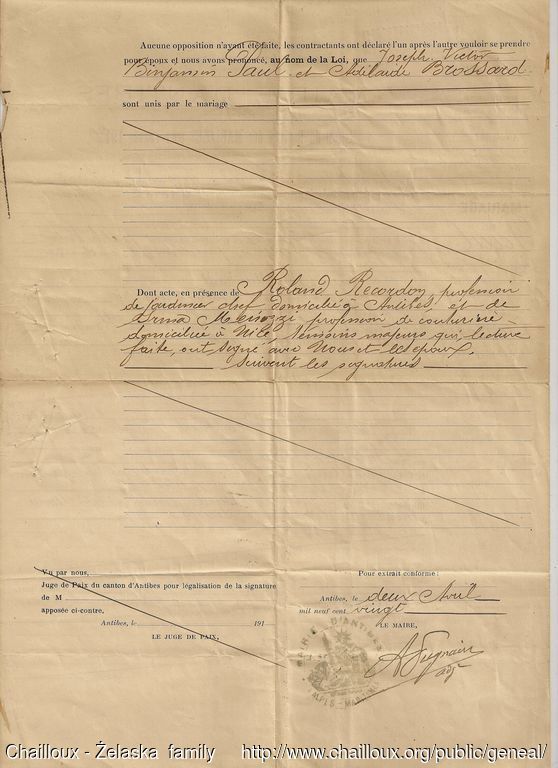 Aucune opposition n'ayant été faite, les contractants ont déclaré l'un après l'autre vouloir se prendre
pour époux et nous avons prononcé, au nom de la Loi, que Joseph Victor
Benjamin Paul et Adélaïde Brossard
sont unis par le mariage
Dont acte, en présence de Roland Recordon profession
de Jardinier chef domicilié à Antibes, et de
profession de couturière
domiciliée à Nice, témoins majeurs qui, lecture
faite, ont signé avec Nous et les époux.
Suivent les signatures
Vu par nous,
Juge de Paix du canton d'Antibes pour légalisation de la signature
de M
apposée ci-contre.
Antibes, le 191
LE JUGE DE PAIX,
Pour extrait conforme :
Antibes, le deux Avril
mil neuf cent vingt
LE MAIRE,
MAIRIE D'ANTIBES
ALPES-MARITIMES
adj
Chailloux - Želaska family http://www.chailloux.org/public/geneal/